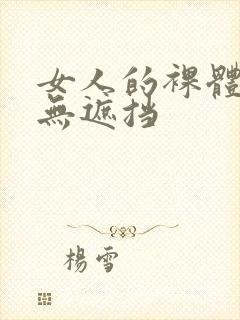 女人的裸體
無遮挡
楊雪